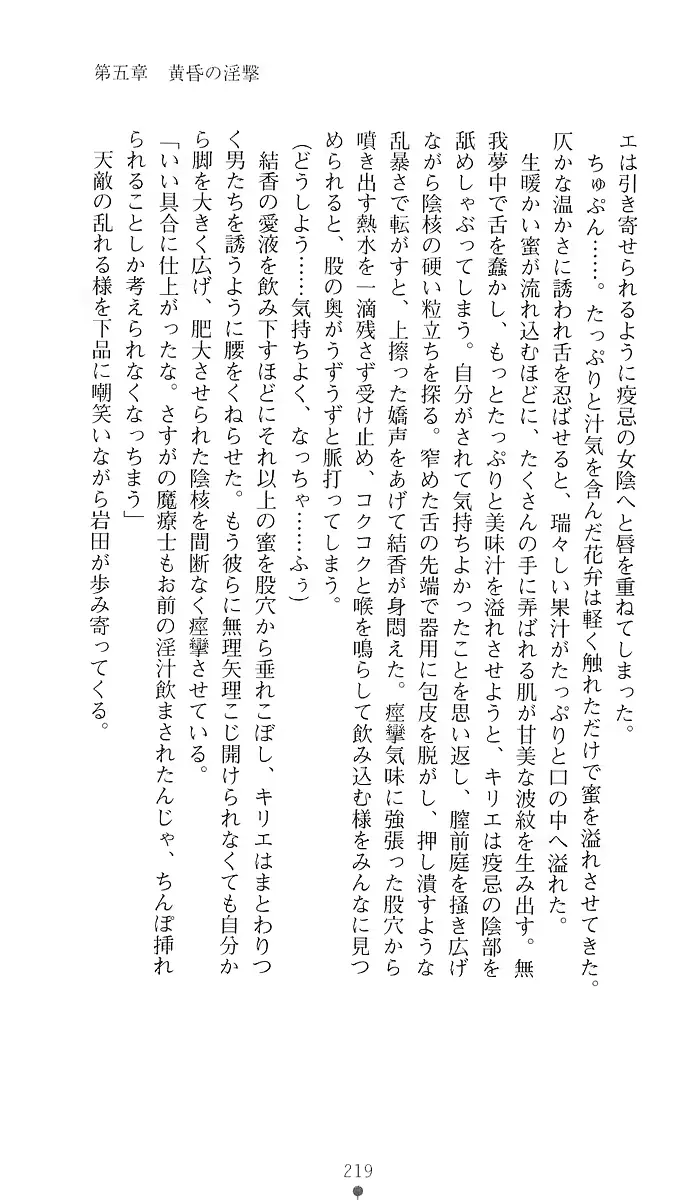 第五章　黄昏の淫撃
エは引き寄せられるように疫忌の女陰へと唇を重ねてしまった。
　ちゅぷん……。たっぷりと汁気を含んだ花弁は軽く触れただけで蜜を溢れさせてきた。
仄かな温かさに誘われ舌を忍ばせると、瑞々しい果汁がたっぷりと口の中へ溢れた。
　生暖かい蜜が流れ込むほどに、たくさんの手に弄ばれる肌が甘美な波紋を生み出す。無
我夢中で舌を蠢かし、もっとたっぷりと美味汁を溢れさせようと、キリエは疫忌の陰部を
舐めしゃぶってしまう。自分がされて気持ちよかったことを思い返し、膣前庭を掻き広げ
ながら陰核の硬い粒立ちを探る。窄めた舌の先端で器用に包皮を脱がし、押し潰すような
乱暴さで転がすと、上擦った嬌声をあげて結香が身悶えた。痙攣気味に強張った股穴から
噴き出す熱水を一滴残さず受け止め、コクコクと喉を鳴らして飲み込む様をみんなに見つ
められると、股の奥がうずうずと脈打ってしまう。
（どうしよう……気持ちよく、なっちゃ……ふぅ）
　結香の愛液を飲み下すほどにそれ以上の蜜を股穴から垂れこぼし、キリエはまとわりつ
く男たちを誘うように腰をくねらせた。もう彼らに無理矢理こじ開けられなくても自分か
ら脚を大きく広げ、肥大させられた陰核を間断なく痙攣させている。
「いい具合に仕上がったな。さすがの魔療士もお前の淫汁飲まされたんじゃ、ちんぽ挿れ
られることしか考えられなくなっちまう」
　天敵の乱れる様を下品に嘲笑いながら岩田が歩み寄ってくる。
219